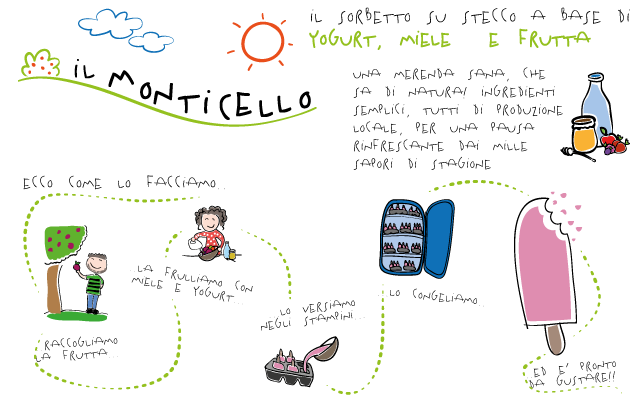 IL MONTICELLO
IL SORBETTO SU STECCO A BASE DI
YOGURT, MIELE E FRUTTA
UNA MERENDA SANA, CHE
SA DI NATURA! INGREDIENTI
SEMPLICI, TUTTI DI PRODUZIONE
LOCALE, PER UNA PAUSA
RINFRESCANTE DAI MILLE
SAPORI DI STAGIONE
ECCO COME LO FACCIAMO...
RACCOGLIAMO
LA FRUTTA...
LA FRULLIAMO CON
MIELE E YOGURT
LO VERSIAMO
NEGLI STAMPINI...
LO CONGELIAMO...
ED E' PRONTO
DA GUSTARE!!